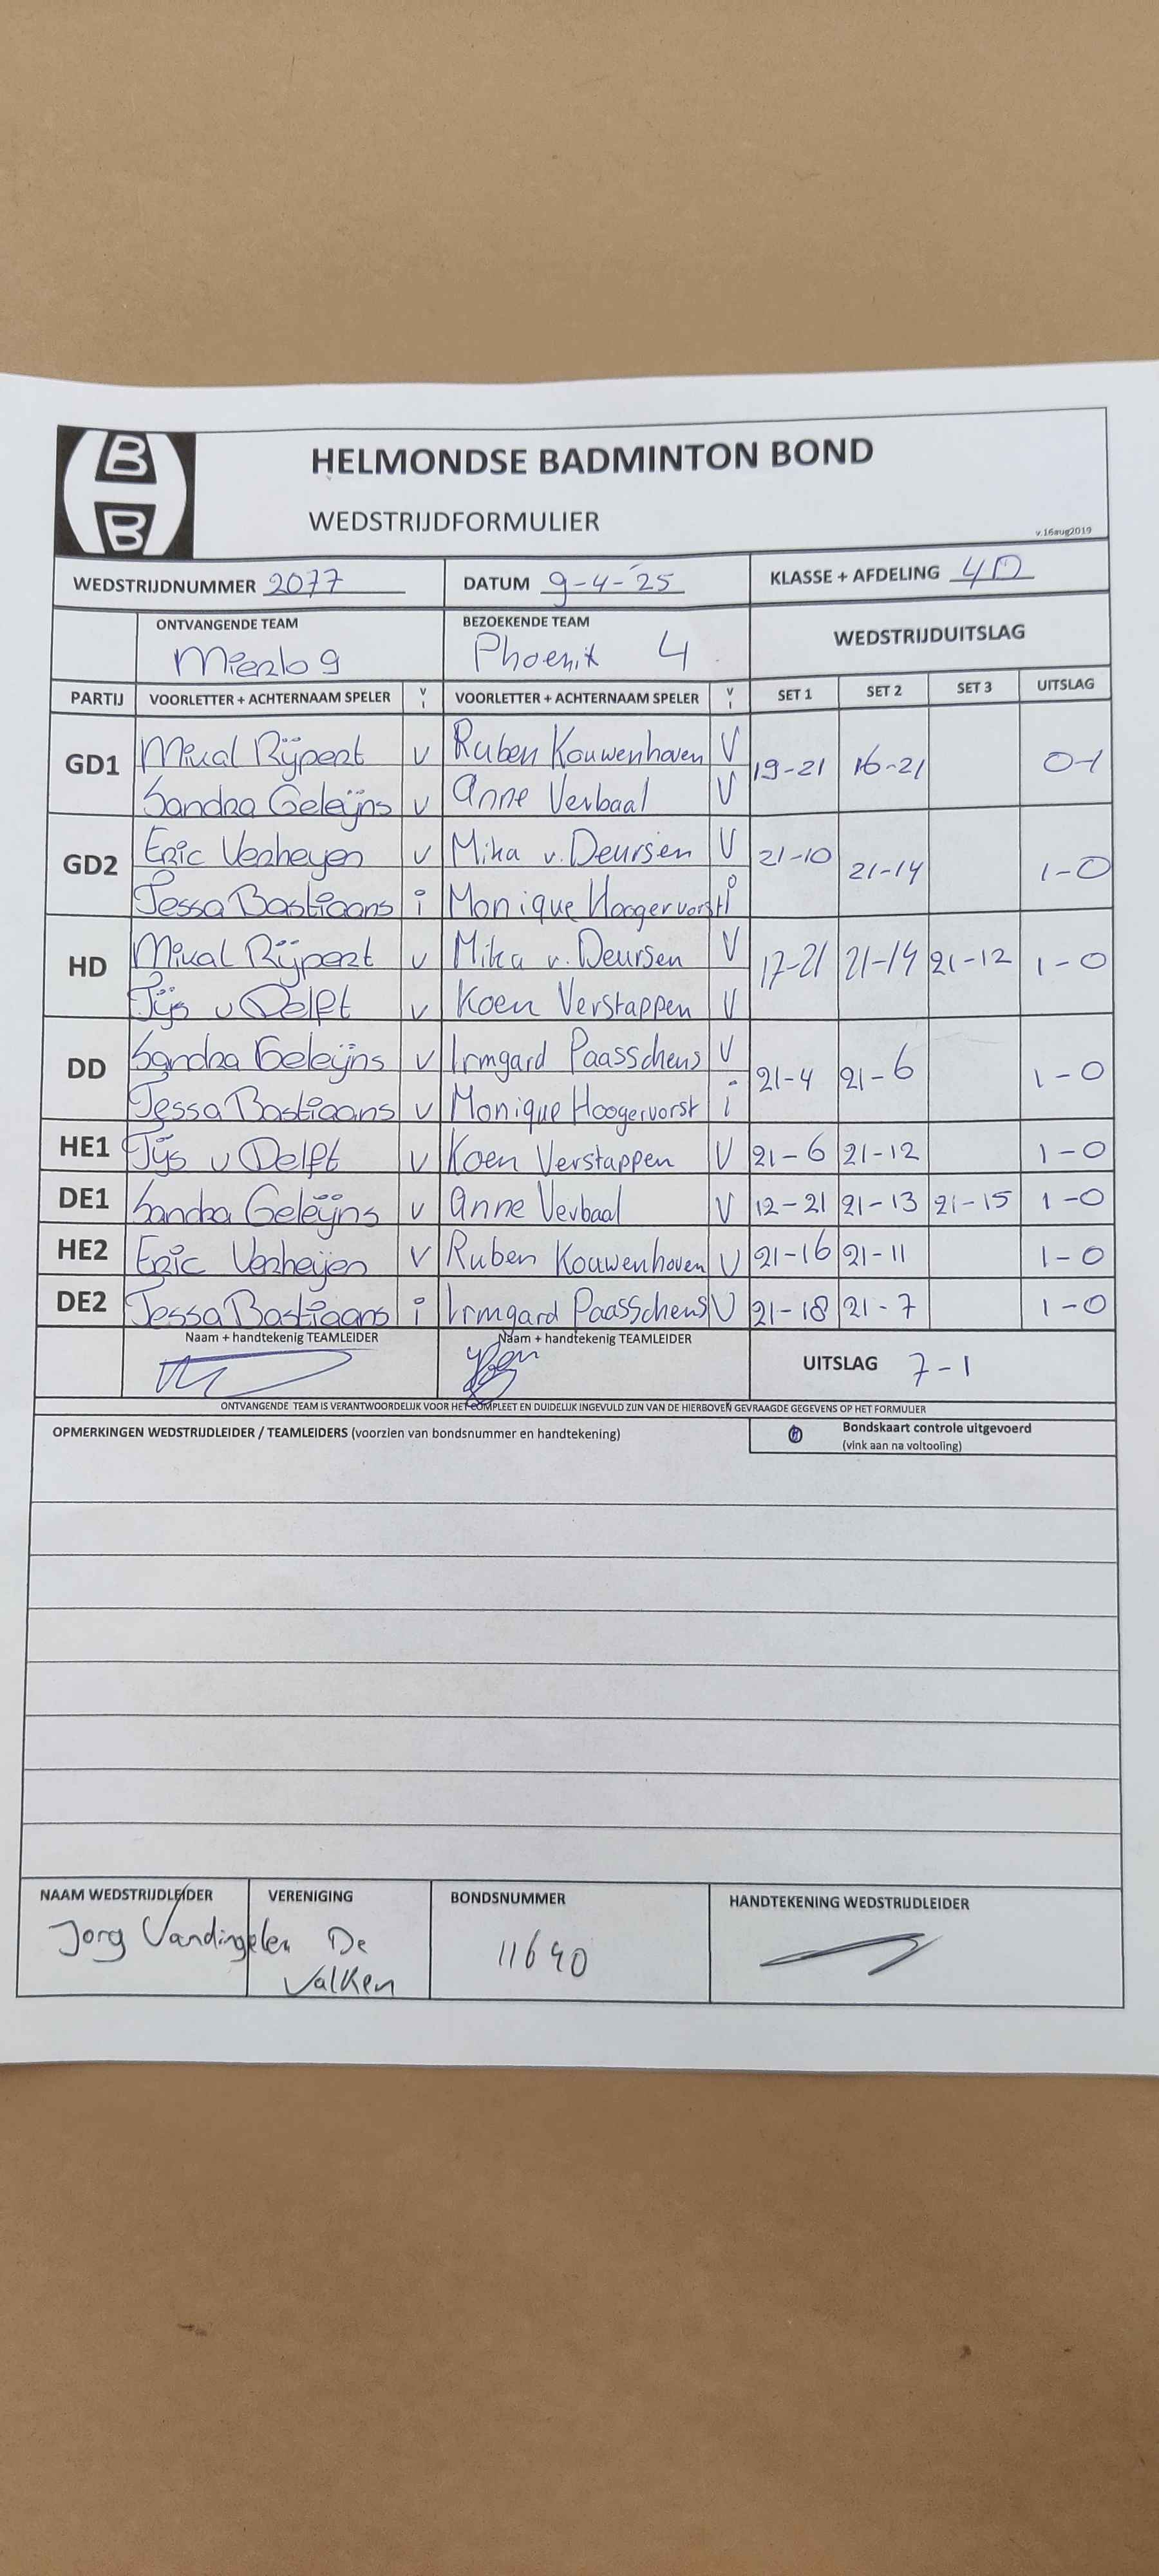 B
B
HELMONDSE BADMINTON BOND
WEDSTRIJDFORMULIER
v.16aug2019
WEDSTRIJDNUMMER 2077 DATUM 9-4-25 KLASSE + AFDELING 4D
ONTVANGENDE TEAM BEZOEKENDE TEAM WEDSTRIJDUITSLAG
Mierlo 9 Phoenix 4
PARTIJ VOORLETTER + ACHTERNAAM SPELER V I VOORLETTER + ACHTERNAAM SPELER V I SET 1 SET 2 SET 3 UITSLAG
GD1 Mical Rijpert v Ruben Kouwenhoven V 19-21 16-21 0-1
Sandra Geleijns v Anne Verbaal V
GD2 Eric Verheyen v Mika v. Deursen V 21-10 21-14 1-0
Jessa Bastiaans i Monique Hoogervorst i
HD Mical Rijpert v Mika v. Deursen V 17-21 21-14 21-12 1-0
Tijs v Delft v Koen Verstappen V
DD Sandra Geleijns v Irmgard Paasschens V 21-4 21-6 1-0
Jessa Bastiaans v Monique Hoogervorst i
HE1 Tijs v Delft v Koen Verstappen V 21-6 21-12 1-0
DE1 Sandra Geleijns v Anne Verbaal V 12-21 21-13 21-15 1-0
HE2 Eric Verheijen v Ruben Kouwenhoven V 21-16 21-11 1-0
DE2 Jessa Bastiaans i Irmgard Paasschens V 21-18 21-7 1-0
Naam + handtekenig TEAMLEIDER Naam + handtekenig TEAMLEIDER
UITSLAG 7-1
ONTVANGENDE TEAM IS VERANTWOORDELIJK VOOR HET COMPLEET EN DUIDELIJK INGEVULD ZIJN VAN DE HIERBOVEN GEVRAAGDE GEGEVENS OP HET FORMULIER
OPMERKINGEN WEDSTRIJDLEIDER / TEAMLEIDERS (voorzien van bondsnummer en handtekening) Bondskaart controle uitgevoerd
(vink aan na voltooling)
NAAM WEDSTRIJDLEIDER VERENIGING BONDSNUMMER HANDTEKENING WEDSTRIJDLEIDER
Jorg Vandingelen De 11640
Valken